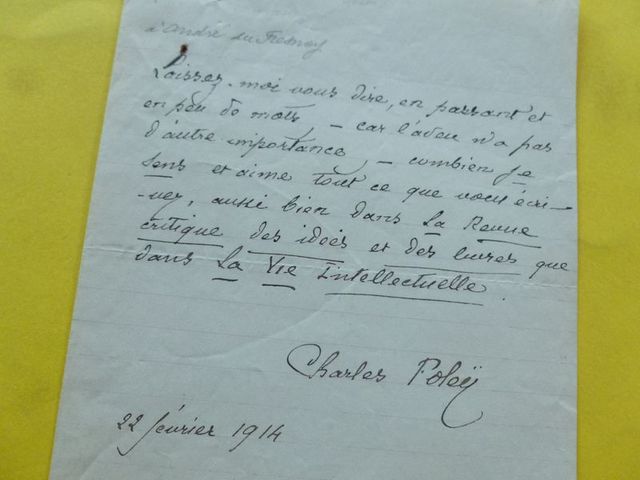 à André du Fresnoy
Laissez-moi vous dire, en passant et
en peu de mots, – car l'aveu n'a pas
d'autre importance, – combien je
sens et aime tout ce que vous écri-
-vez, aussi bien dans La Revue
critique des idées et des livres que
dans La Vie Intellectuelle.
Charles Foleÿ
22 février 1914